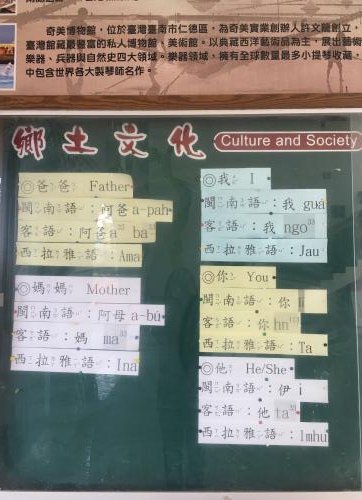 奇美博物館，位於臺灣臺南市仁德區，為奇美實業創辦人許文龍創立，
臺灣館藏最豐富的私人博物館、美術館。以典藏西洋藝術品為主，展出藝術、
樂器、兵器與自然史四大領域。樂器領域，擁有全球數量最多小提琴收藏，
中包含世界各大製琴師名作。
鄉土文化 Culture and Society
◎爸爸 Father
閩南語：阿爸a-pah
客語：阿爸a ba
西拉雅語：Ama
◎媽媽 Mother
閩南語：阿母a-bú
客語：媽 ma
西拉雅語：Ina
◎我 I
閩南語：我 guá
客語：我 ngo
西拉雅語：Jau
◎你 You
閩南語：你 lí
客語：你 hn
西拉雅語：Ta
◎他 He/She
閩南語：伊 i
客語：他 ta
西拉雅語：Imhu